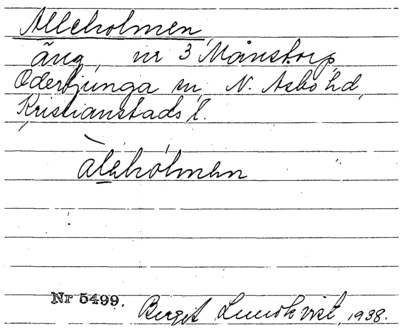 Alleholmen
äng nr 3 Månstorp,
Oderljunga sn, N. Åsbo hd,
Kristianstads l.
àlehólmen
Nr 5499. Berget Lundkvist, 1938.